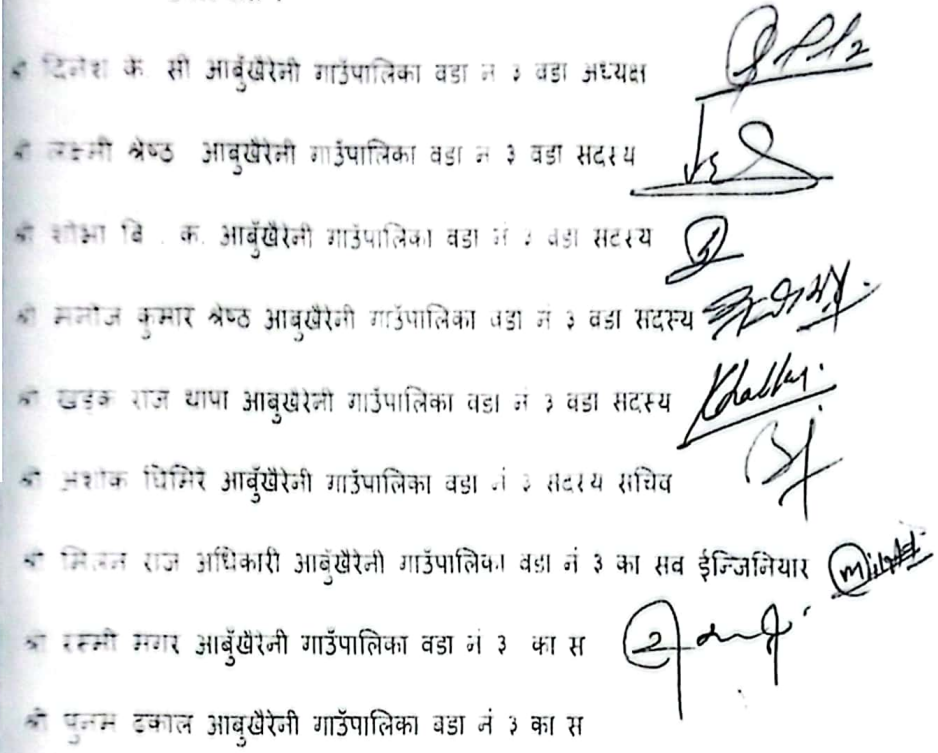 श्री दिनेश के. सी आबुँखैरेनी गाउँपालिका वडा नं ३ वडा अध्यक्ष
श्री लक्ष्मी श्रेष्ठ आबुखैरेनी गाउँपालिका वडा नं ३ वडा सदस्य
श्री शोभा बि . क. आबुँखैरेनी गाउँपालिका वडा नं ३ वडा सदस्य
श्री मनोज कुमार श्रेष्ठ आबुखैरेनी गाउँपालिका वडा नं ३ वडा सदस्य
श्री खड्क राज थापा आबुखैरेनी गाउँपालिका वडा नं ३ वडा सदस्य
श्री अशोक घिमिरे आबुँखैरेनी गाउँपालिका वडा नं ३ सदस्य सचिव
श्री मिलन राज अधिकारी आबुँखैरेनी गाउँपालिका वडा नं ३ का सव ईन्जिनियार
श्री रस्मी मगर आबुँखैरेनी गाउँपालिका वडा नं ३ का स
श्री पुनम ढकाल आबुखैरेनी गाउँपालिका वडा नं ३ का स